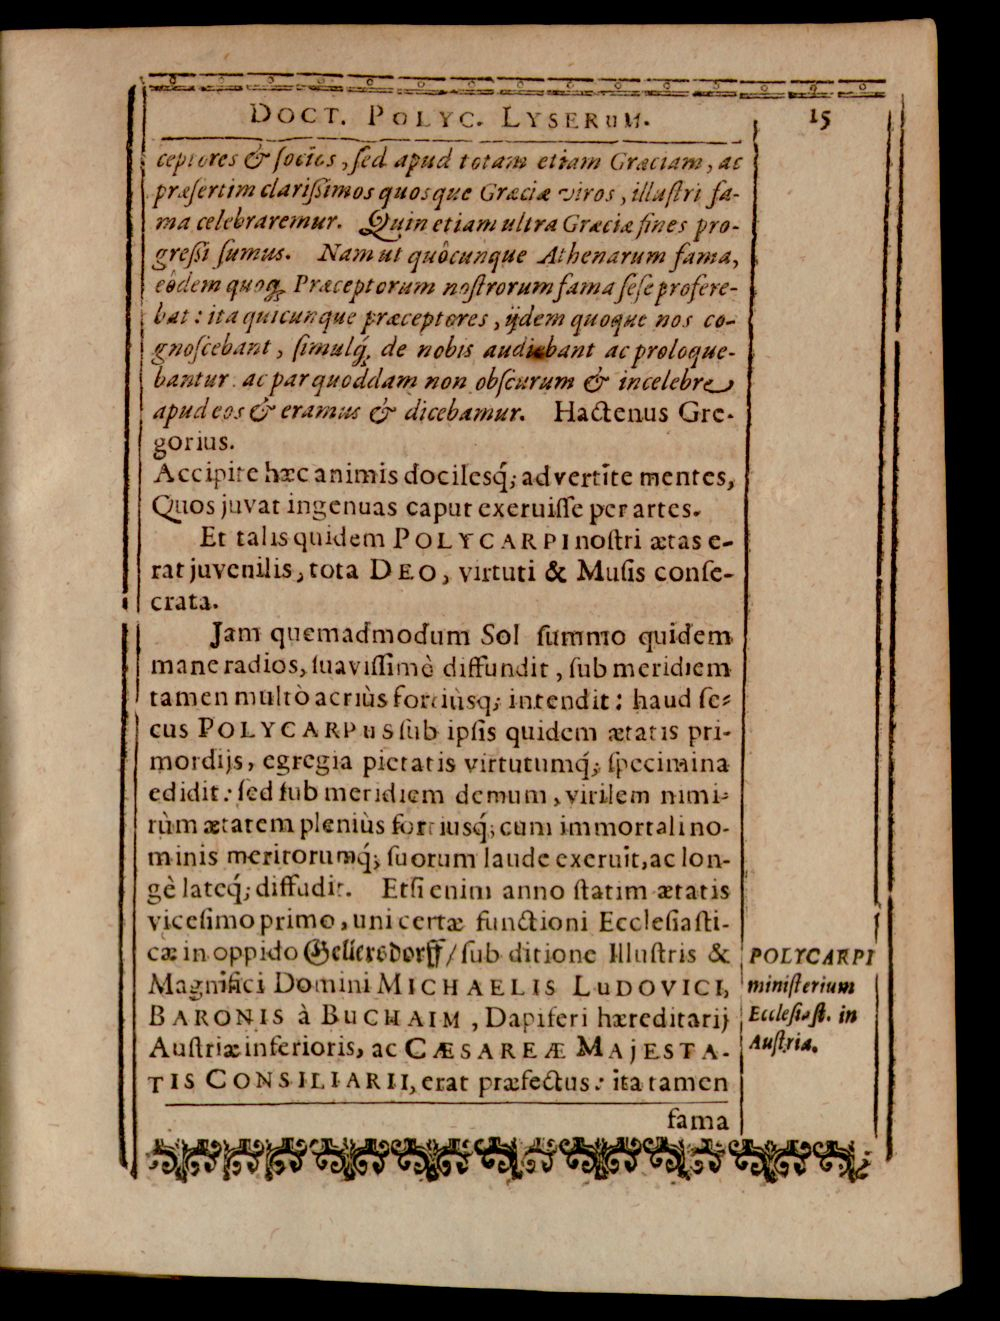 DOCT. POLYC. LYSERUM. 15
ceptores & socios, sed apud totam etiam Græciam, ac
præsertim clarißimos quosque Græciæ viros, illustri fa-
ma celebraremur. Quin etiam ultra Græciæ fines pro-
greßi sumus. Nam ut quôcunque Athenarum fama,
eôdem quoq; Præceptorum nostrorum fama sese profere-
bat: ita quicunque præceptores, ijdem quoque nos co-
gnoscebant, simulq́; de nobis audiebant ac proloque-
bantur. ac par quoddam non obscurum & incelebre
apud eos & eramus & dicebamur. Hactenus Gre-
gorius.
Accipite hæc animis docilesq́; advertite mentes,
Quos juvat ingenuas caput exeruisse per artes.
Et talis quidem POLYCARPI nostri ætas e-
rat juvenilis, tota DEO, virtuti & Musis conse-
crata.
Jam quemadmodum Sol summo quidem
mane radios, suavissimè diffundit, sub meridiem
tamen multò acriùs fortiùsq; intendit: haud se-
cus POLYCARPUS sub ipsis quidem ætatis pri-
mordijs, egregia pietatis virtutumq́; specimina
edidit: sed sub meridiem demum, virilem nimi-
rùm ætatem pleniùs fortiusq́; cum immortali no-
minis meritorumq́; suorum laude exeruit, ac lon-
gè lateq́; diffudit. Etsi enim anno statim ætatis
vicesimo primo, uni certæ functioni Ecclesiasti-
cæ in oppido Gellersdorff/ sub ditione Illustris &
Magnifici Domini MICHAELIS LUDOVICI,
BARONIS à BUCHAIM, Dapiferi hæreditarij
Austriæ inferioris, ac CÆSAREÆ MAJESTA-
TIS CONSILIARII, erat præfectus: ita tamen
fama
POLYCARPI
ministerium
Ecclesiast. in
Austria.